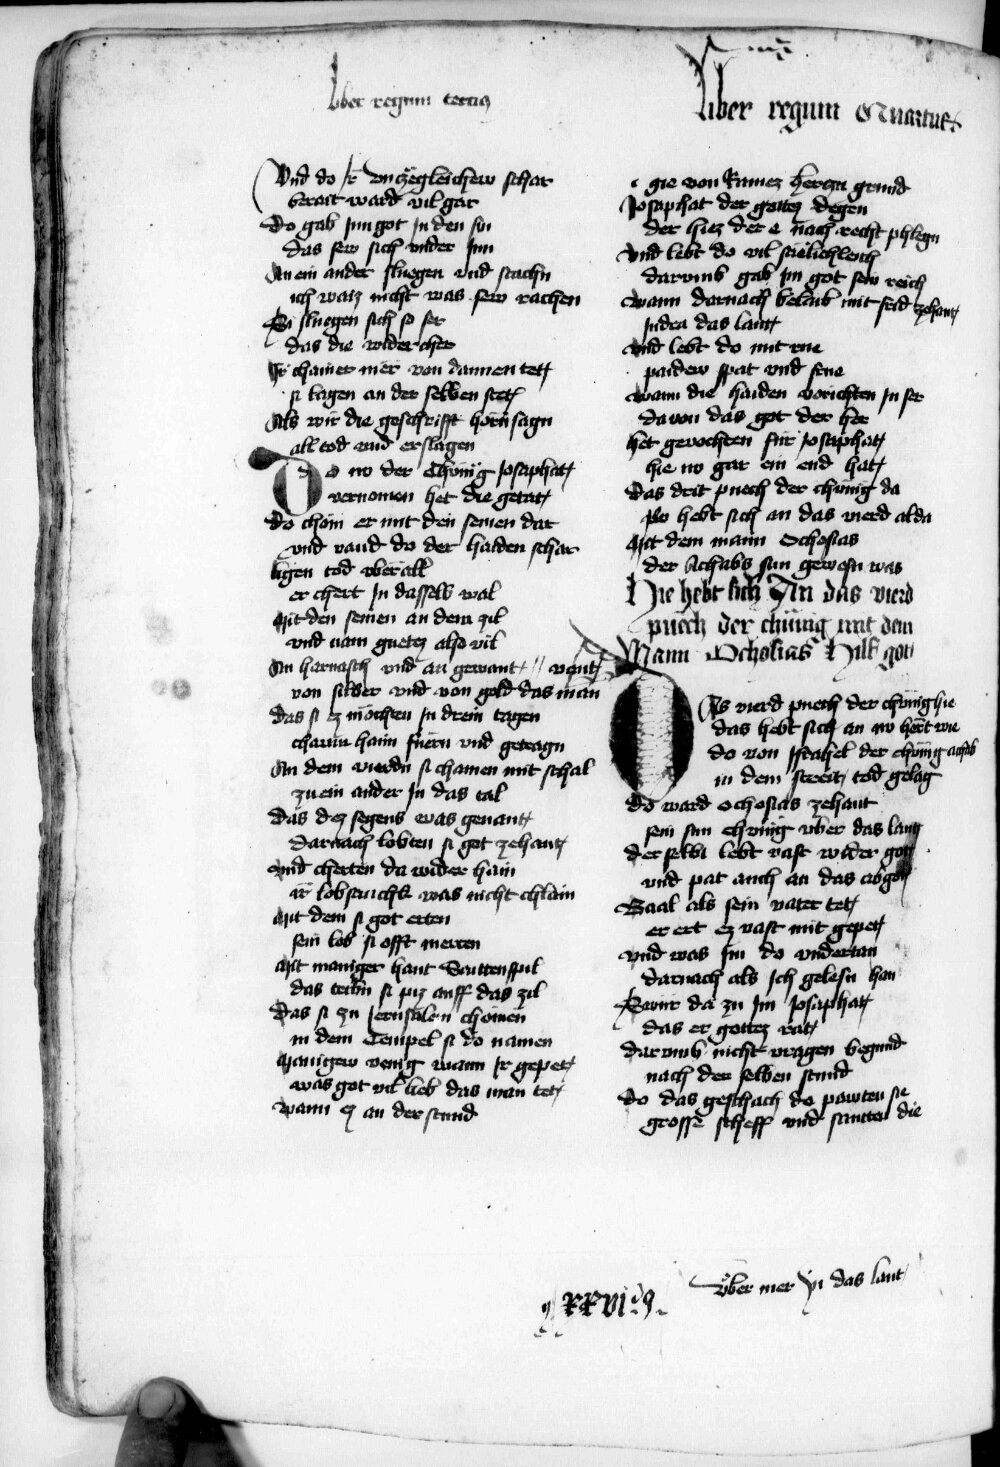 liber regum tercius
Liber regum Quartus
Und do ir unczegleichew schar
berait ward vil gar
Do gab inn got in den sin
das sew sich under inn
An ein ander sluegen und stachn
ich waiz nicht was sew rachen
Si sluegen sich so ser
das die widercher
Ir chainer mer von dannen tett
si lagen an der selben stett
Als wir die geschrifft hörn sagn
all tod und erslagen
Do no der Chönig Josaphatt
vernomen het die getatt
Do chom er mit den seinen dar
und vand do der haiden schar
ligen tod uberall
er chert in dasselb wal
Mit den seinen an dem zil
und nam guetez also vil
An harnasch und an gewant
von silber und von gold das man
das si ez möchten in drein tagen
chawm haim fuern und getragn
An dem vierdn si chamen mit schal
zu ein ander in das tal
Das dez segens was genant
darnach lobten si got zehant
und cherten da wider haim
ir lobsanckh was nicht chlain
Mit dem si got erten
sein lob si offt merten
Mit maniger hant Saittenspil
das tribn si piz auff das zil
Das si zu Jerusalen chömen
in dem Tempel si do namen
Manigew venig wann ir gepett
was got vil lieb das man tett
wann ez an der stund
gie von Ramez herczn grund
Josaphat der gottez degen
der hiez der e nach recht phlegn
Und lebt do vil sälichleich
darumb gab im got sew reich
wann darnach belaib mit frid zehant
Judea das lant
und lebt do mit rue
paidew spat und frue
wann die haiden vorichten in ser
davon das got der her
het gevochten für Josaphatt
hie no gar ein end hatt
Das drit puech der chönig da
So hebt sich an das vierd alda
Mit dem mann Ochosias
der Achabs sun gewesn was
Hie hebt sich An das vierd
puech der chünig mit dem
Mann Ocholias Hilf got
Das vierd puech der chönig hie
das hebt sich an no hört wie
do von Israhel der chönig achab
in dem streitt tod gelag
do ward ochosias zehant
sein sun chönig über das lant
der selbi lebt vast wider got
und pat auch an das abgot
Baal als sein vater tett
er ert ez vast mit gepett
und was im do undertan
darnach als ich gelesn han
Swuir da zu im Josaphatt
das er gottez ratt
darumb nicht vragen begund
nach der selben stund
do das geschach do pawten sie
grosse scheff und santten die
über mer in das lant
xxvi